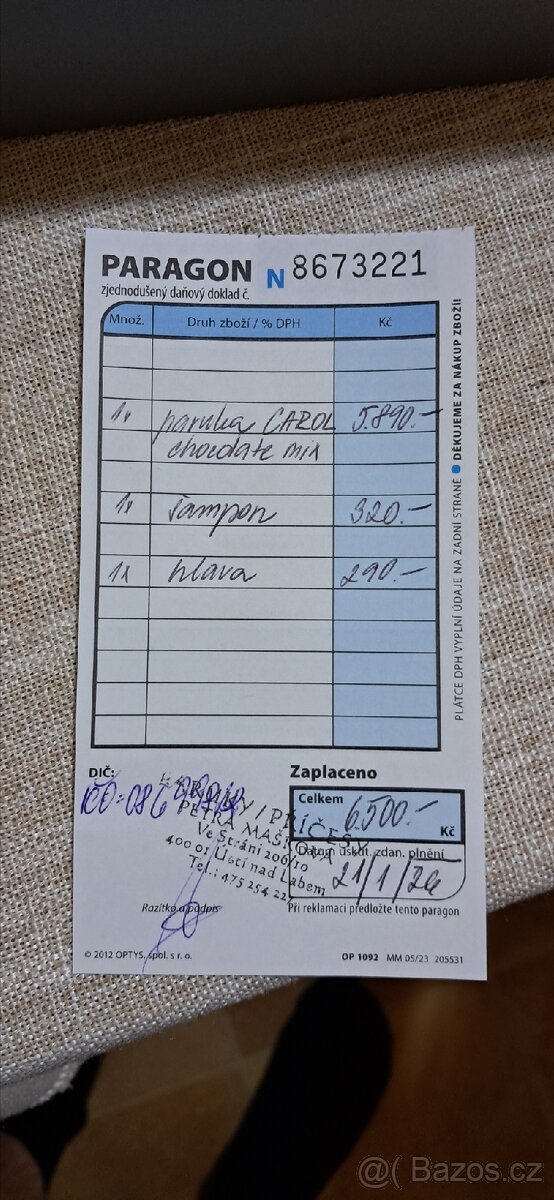 PARAGON N 8673221
zjednodušený daňový doklad č.
Množ. Druh zboží / % DPH Kč
1x paruka CAROL 5.890.-
chocolate mix
1x šampon 320.-
1x hlava 290.-
PLÁTCE DPH VYPLNÍ ÚDAJE NA ZADNÍ STRANĚ ● DĚKUJEME ZA NÁKUP ZBOŽÍ!
DIČ:
IČO:
PARUKY / PŘÍČESKY
PETRA
Ve Strání 206/10
400 01 Ústí nad Labem
Tel.: 475 254 227
Razítko a podpis
Zaplaceno
Celkem 6.500.- Kč
Datum uskut. zdan. plnění
21/1/26
Při reklamaci předložte tento paragon
© 2012 OPTYS, spol. s r. o. OP 1092 MM 05/23 205531
@( Bazos.cz